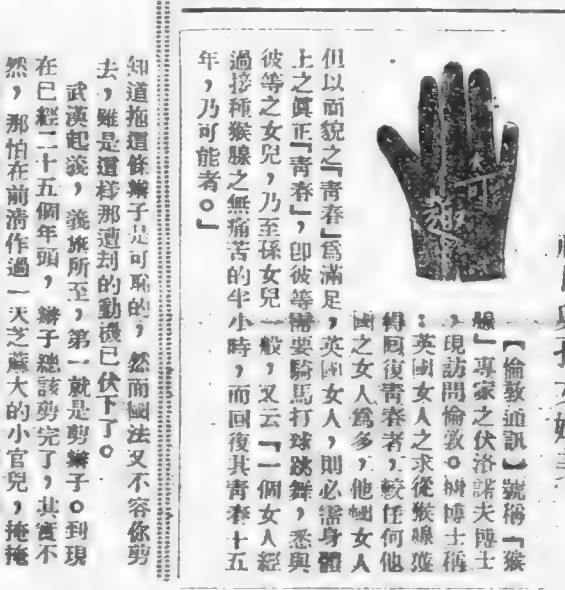 趣
【倫敦通訊】號稱「猴
腺」專家之伏洛諾夫博士
，現訪問倫敦。據博士稱
：英國女人之求從猴腺獲
得囘復青春者，較任何他
國之女人爲多，他國女人
但以面貌之『青春』爲滿足，英國女人，則必需身體
上之眞正『青春』，卽彼等需要騎馬打球跳舞，悉與
彼等之女兒，乃至孫女兒一般，又云『一個女人經
過接種猴腺之無痛苦的半小時，而囘復其青春十五
年，乃可能者。』
知道拖這條辮子是可恥的，然而國法又不容你剪
去，雖是這樣那遭刦的動機已伏下了。
武漢起義，義旅所至，第一就是剪辮子。到現
在已經二十五個年頭，辮子總該剪完了，其實不
然，那怕在前清作過一天芝蔴大的小官兒，掩掩